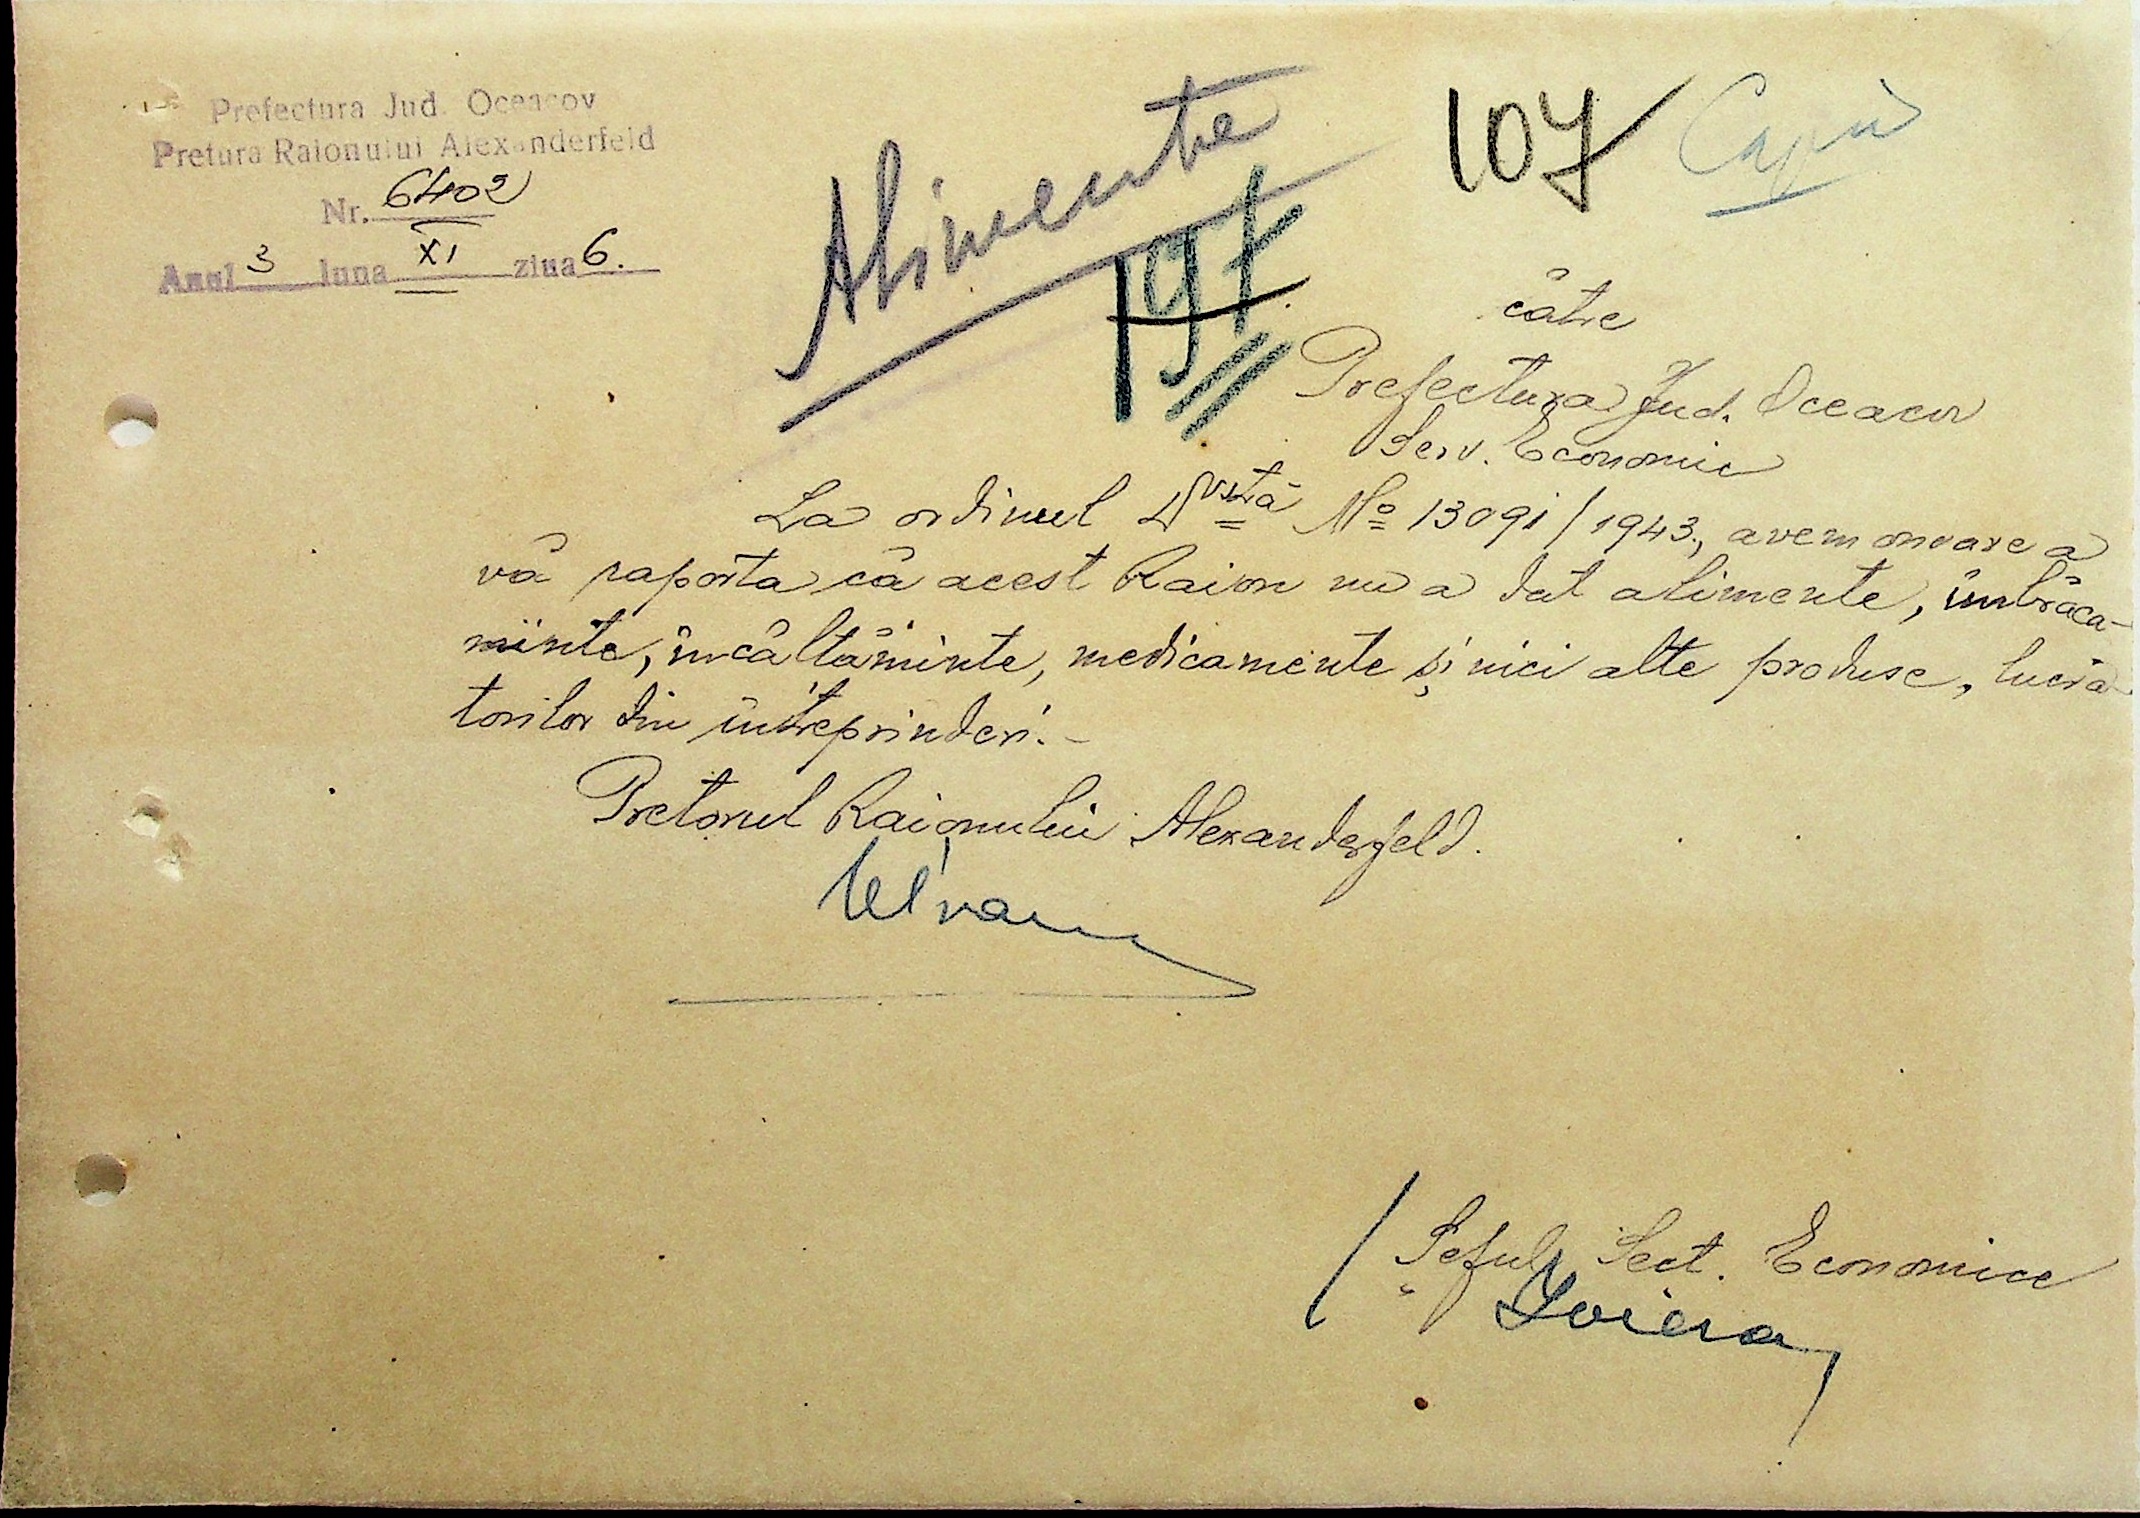 Prefectura Jud. Oceacov
Pretura Raionului Alexanderfeld
Nr. 6402
Anul 3 luna XI ziua 6.
Alimente
197
107
către
Prefectura Jud. Oceacov
Serv. Economic
La ordinul Dvstră No 13091/1943, avem onoare a
vă raporta că acest Raion nu a dat alimente, îmbrăca-
minte, încălțăminte, medicamente și nici alte produse, lucră-
torilor din întreprinderi.-
Pretorul Raionului Alexanderfeld.
Șeful Sect. Economice